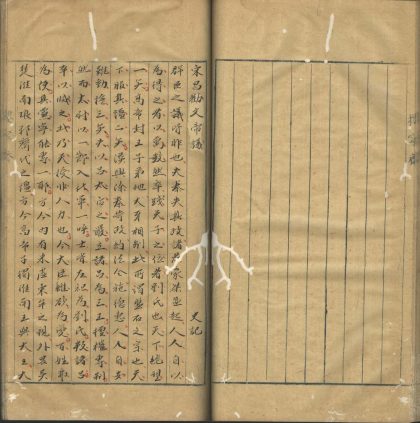 宋昌勸文帝議 史記
群臣之議皆非也夫秦失其政諸侯豪桀並起人人自以
為得之者以萬數然卒踐天子之位者劉氏也天下絕望
一矣高帝封王子弟地犬牙相制此所謂盤石之宗也天
下服其彊二矣漢興除秦苛政約法令施德惠人人自安
難動搖三矣夫以呂太后之嚴立諸呂為三王擅權專制
然而太尉以一節入北軍一呼士皆左袒為劉氏叛諸呂
卒以滅之此乃天授非人力也今大臣雖欲為變百姓弗
為使其黨寧能專一邪方今內有朱虛東牟之親外畏吳
楚淮南琅邪齊代之彊方今高帝子獨淮南王與大王大